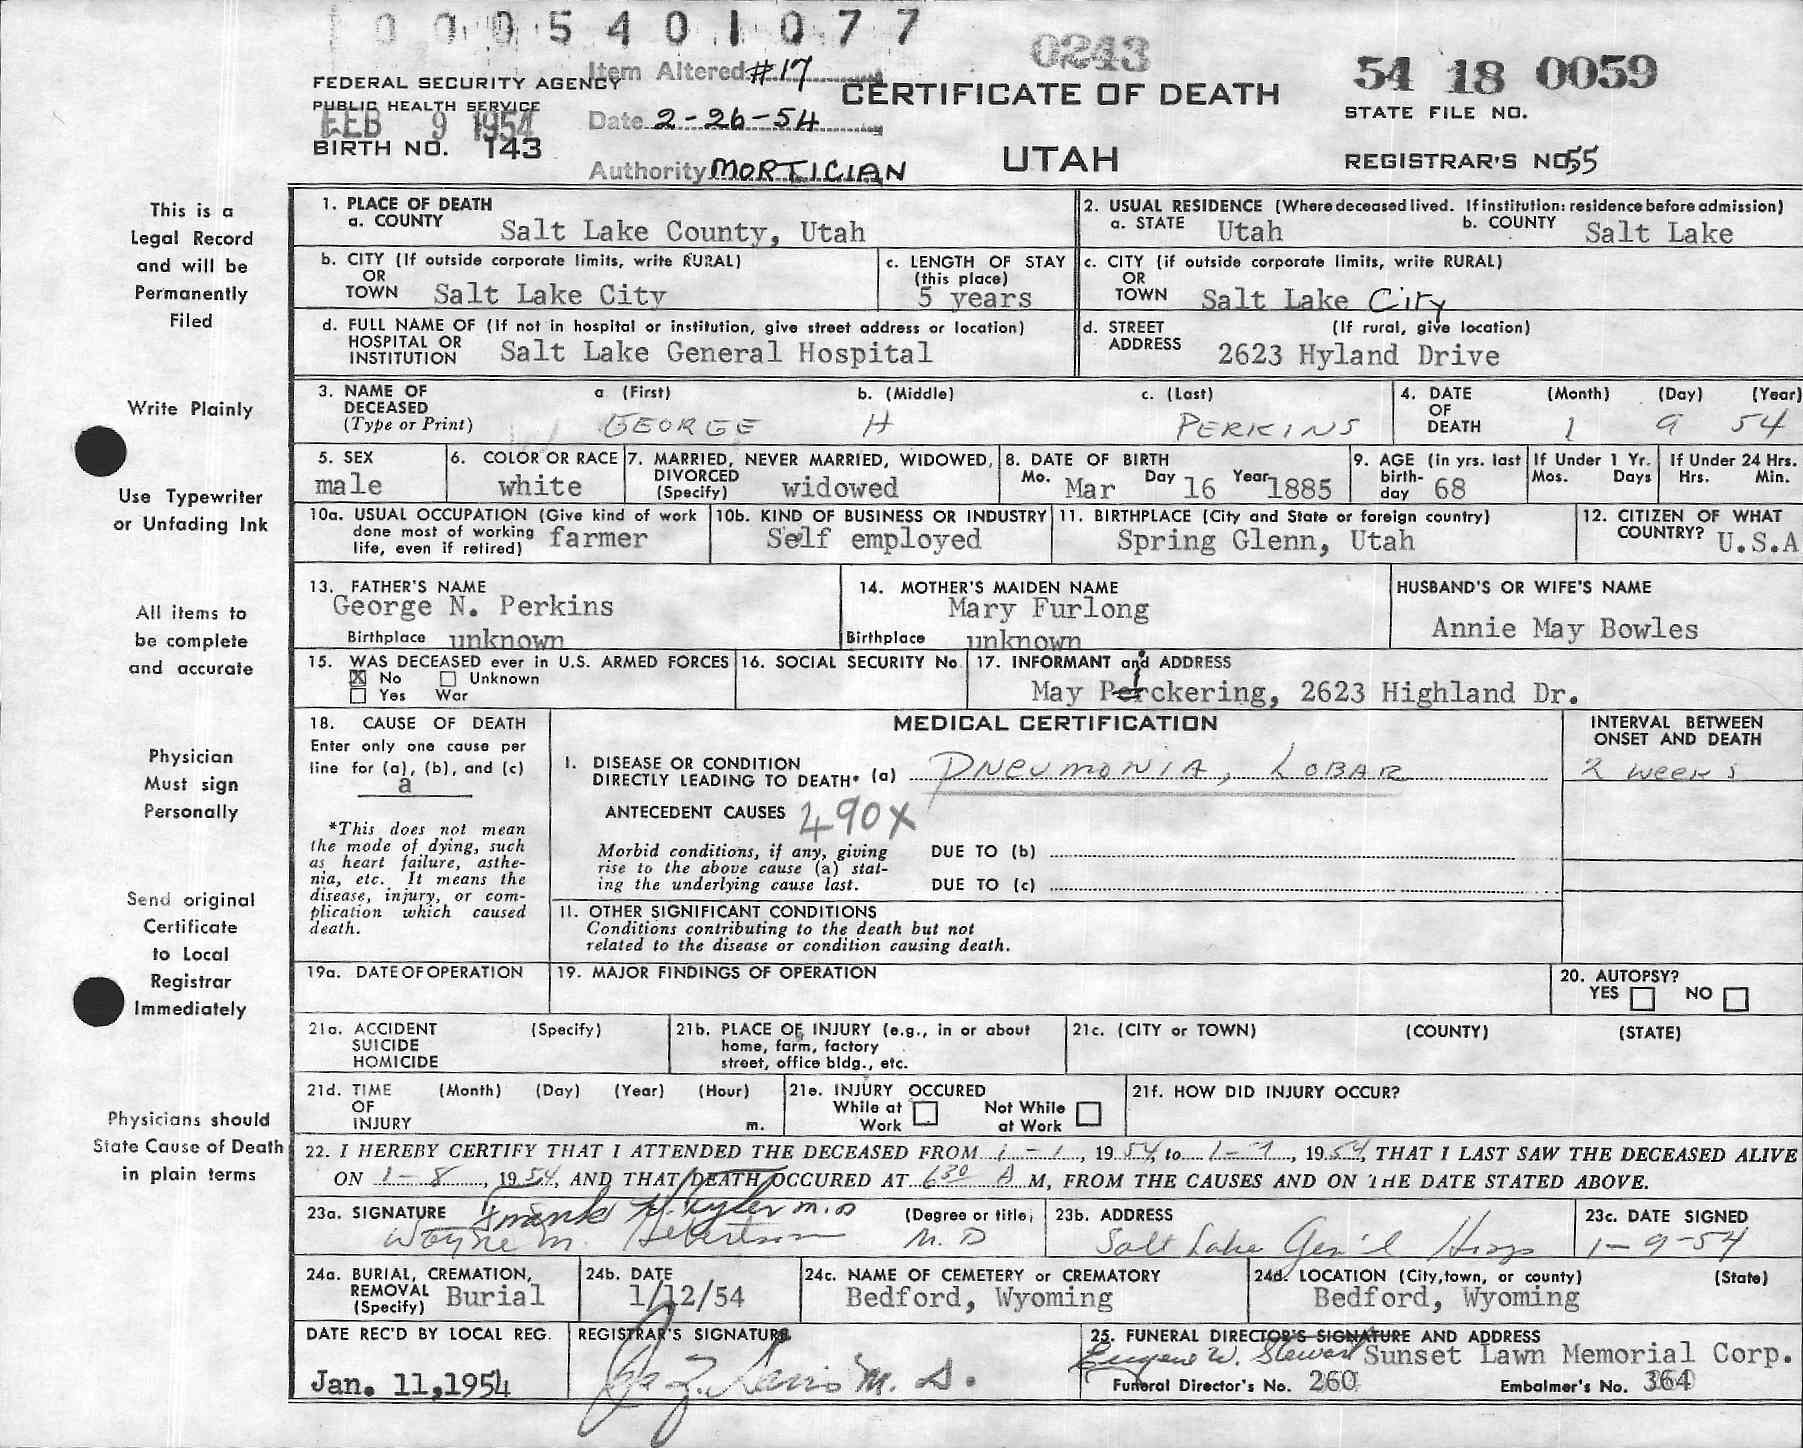 0 0 0 5 4 0 1 0 7 7
0243
54 18 0059
Item Altered #17
FEDERAL SECURITY AGENCY
PUBLIC HEALTH SERVICE
CERTIFICATE OF DEATH
STATE FILE NO.
FEB 9 1954
Date 2-26-54
BIRTH NO. 143
UTAH
REGISTRAR'S NO. 55
Authority MORTICIAN
This is a
Legal Record
and will be
Permanently
Filed
Write Plainly
Use Typewriter
or Unfading Ink
All items to
be complete
and accurate
Physician
Must sign
Personally
Send original
Certificate
to Local
Registrar
Immediately
Physicians should
State Cause of Death
in plain terms
1. PLACE OF DEATH
a. COUNTY Salt Lake County, Utah
2. USUAL RESIDENCE (Where deceased lived. If institution: residence before admission)
a. STATE Utah b. COUNTY Salt Lake
b. CITY (If outside corporate limits, write RURAL)
OR
TOWN Salt Lake City
c. LENGTH OF STAY
(this place)
5 years
c. CITY (if outside corporate limits, write RURAL)
OR
TOWN Salt Lake City
d. FULL NAME OF (If not in hospital or institution, give street address or location)
HOSPITAL OR
INSTITUTION Salt Lake General Hospital
d. STREET (If rural, give location)
ADDRESS 2623 Hyland Drive
3. NAME OF DECEASED
(Type or Print)
a (First) b. (Middle) c. (Last)
GEORGE H PERKINS
4. DATE OF DEATH (Month) (Day) (Year)
1 9 54
5. SEX
male
6. COLOR OR RACE
white
7. MARRIED, NEVER MARRIED, WIDOWED,
DIVORCED
(Specify) widowed
8. DATE OF BIRTH
Mo. Mar Day 16 Year 1885
9. AGE (in yrs. last
birth-
day 68
If Under 1 Yr.
Mos. Days
If Under 24 Hrs.
Hrs. Min.
10a. USUAL OCCUPATION (Give kind of work
done most of working
life, even if retired) farmer
10b. KIND OF BUSINESS OR INDUSTRY
Self employed
11. BIRTHPLACE (City and State or foreign country)
Spring Glenn, Utah
12. CITIZEN OF WHAT
COUNTRY? U.S.A
13. FATHER'S NAME
George N. Perkins
Birthplace unknown
14. MOTHER'S MAIDEN NAME
Mary Furlong
Birthplace unknown
HUSBAND'S OR WIFE'S NAME
Annie May Bowles
15. WAS DECEASED ever in U.S. ARMED FORCES
X No Unknown
Yes War
16. SOCIAL SECURITY No.
17. INFORMANT and ADDRESS
May Pickering, 2623 Highland Dr.
18. CAUSE OF DEATH
Enter only one cause per
line for (a), (b), and (c)
a
*This does not mean
the mode of dying, such
as heart failure, asthe-
nia, etc. It means the
disease, injury, or com-
plication which caused
death.
MEDICAL CERTIFICATION
INTERVAL BETWEEN
ONSET AND DEATH
I. DISEASE OR CONDITION
DIRECTLY LEADING TO DEATH* (a) PNEUMONIA, LOBAR
2 weeks
ANTECEDENT CAUSES 490X
Morbid conditions, if any, giving
rise to the above cause (a) stat-
ing the underlying cause last.
DUE TO (b)
DUE TO (c)
II. OTHER SIGNIFICANT CONDITIONS
Conditions contributing to the death but not
related to the disease or condition causing death.
19a. DATE OF OPERATION
19. MAJOR FINDINGS OF OPERATION
20. AUTOPSY?
YES NO
21a. ACCIDENT (Specify)
SUICIDE
HOMICIDE
21b. PLACE OF INJURY (e.g., in or about
home, farm, factory
street, office bldg., etc.
21c. (CITY or TOWN) (COUNTY) (STATE)
21d. TIME (Month) (Day) (Year) (Hour)
OF
INJURY m.
21e. INJURY OCCURED
While at Work
Not While at Work
21f. HOW DID INJURY OCCUR?
22. I HEREBY CERTIFY THAT I ATTENDED THE DECEASED FROM 1-1, 1954, to 1-9, 1954, THAT I LAST SAW THE DECEASED ALIVE
ON 1-8, 1954, AND THAT DEATH OCCURED AT 6 30 A M, FROM THE CAUSES AND ON THE DATE STATED ABOVE.
23a. SIGNATURE Frank H. Tyler M.D (Degree or title)
Wayne M. Hebertson M.D
23b. ADDRESS
Salt Lake Gen'l Hosp
23c. DATE SIGNED
1-9-54
24a. BURIAL, CREMATION,
REMOVAL
(Specify) Burial
24b. DATE
1/12/54
24c. NAME OF CEMETERY or CREMATORY
Bedford, Wyoming
24d. LOCATION (City, town, or county) (State)
Bedford, Wyoming
DATE REC'D BY LOCAL REG.
Jan. 11,1954
REGISTRAR'S SIGNATURE
M.D.
25. FUNERAL DIRECTOR'S SIGNATURE AND ADDRESS
Eugene W. Stewart Sunset Lawn Memorial Corp.
Funeral Director's No. 260 Embalmer's No. 364